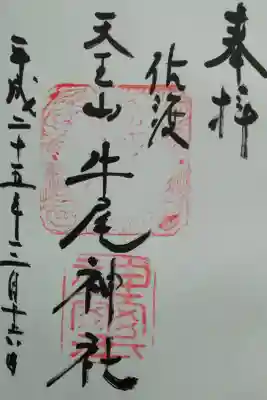 奉拝
佐渡
天王山 牛尾神社
平成二十五年二月十六日